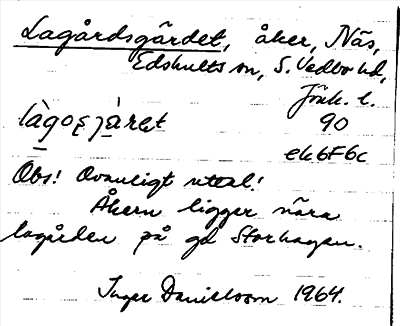 Lagårdsgärdet, åker, Näs,
Edshults sn, S. Vedbo hd,
Jönk. l.
làgosjàret 90
ek6F6c
Obs! Ovanligt uttal!
Åkern ligger nära
lagården på gd Storhagen.
Inger Danielsson 1964.